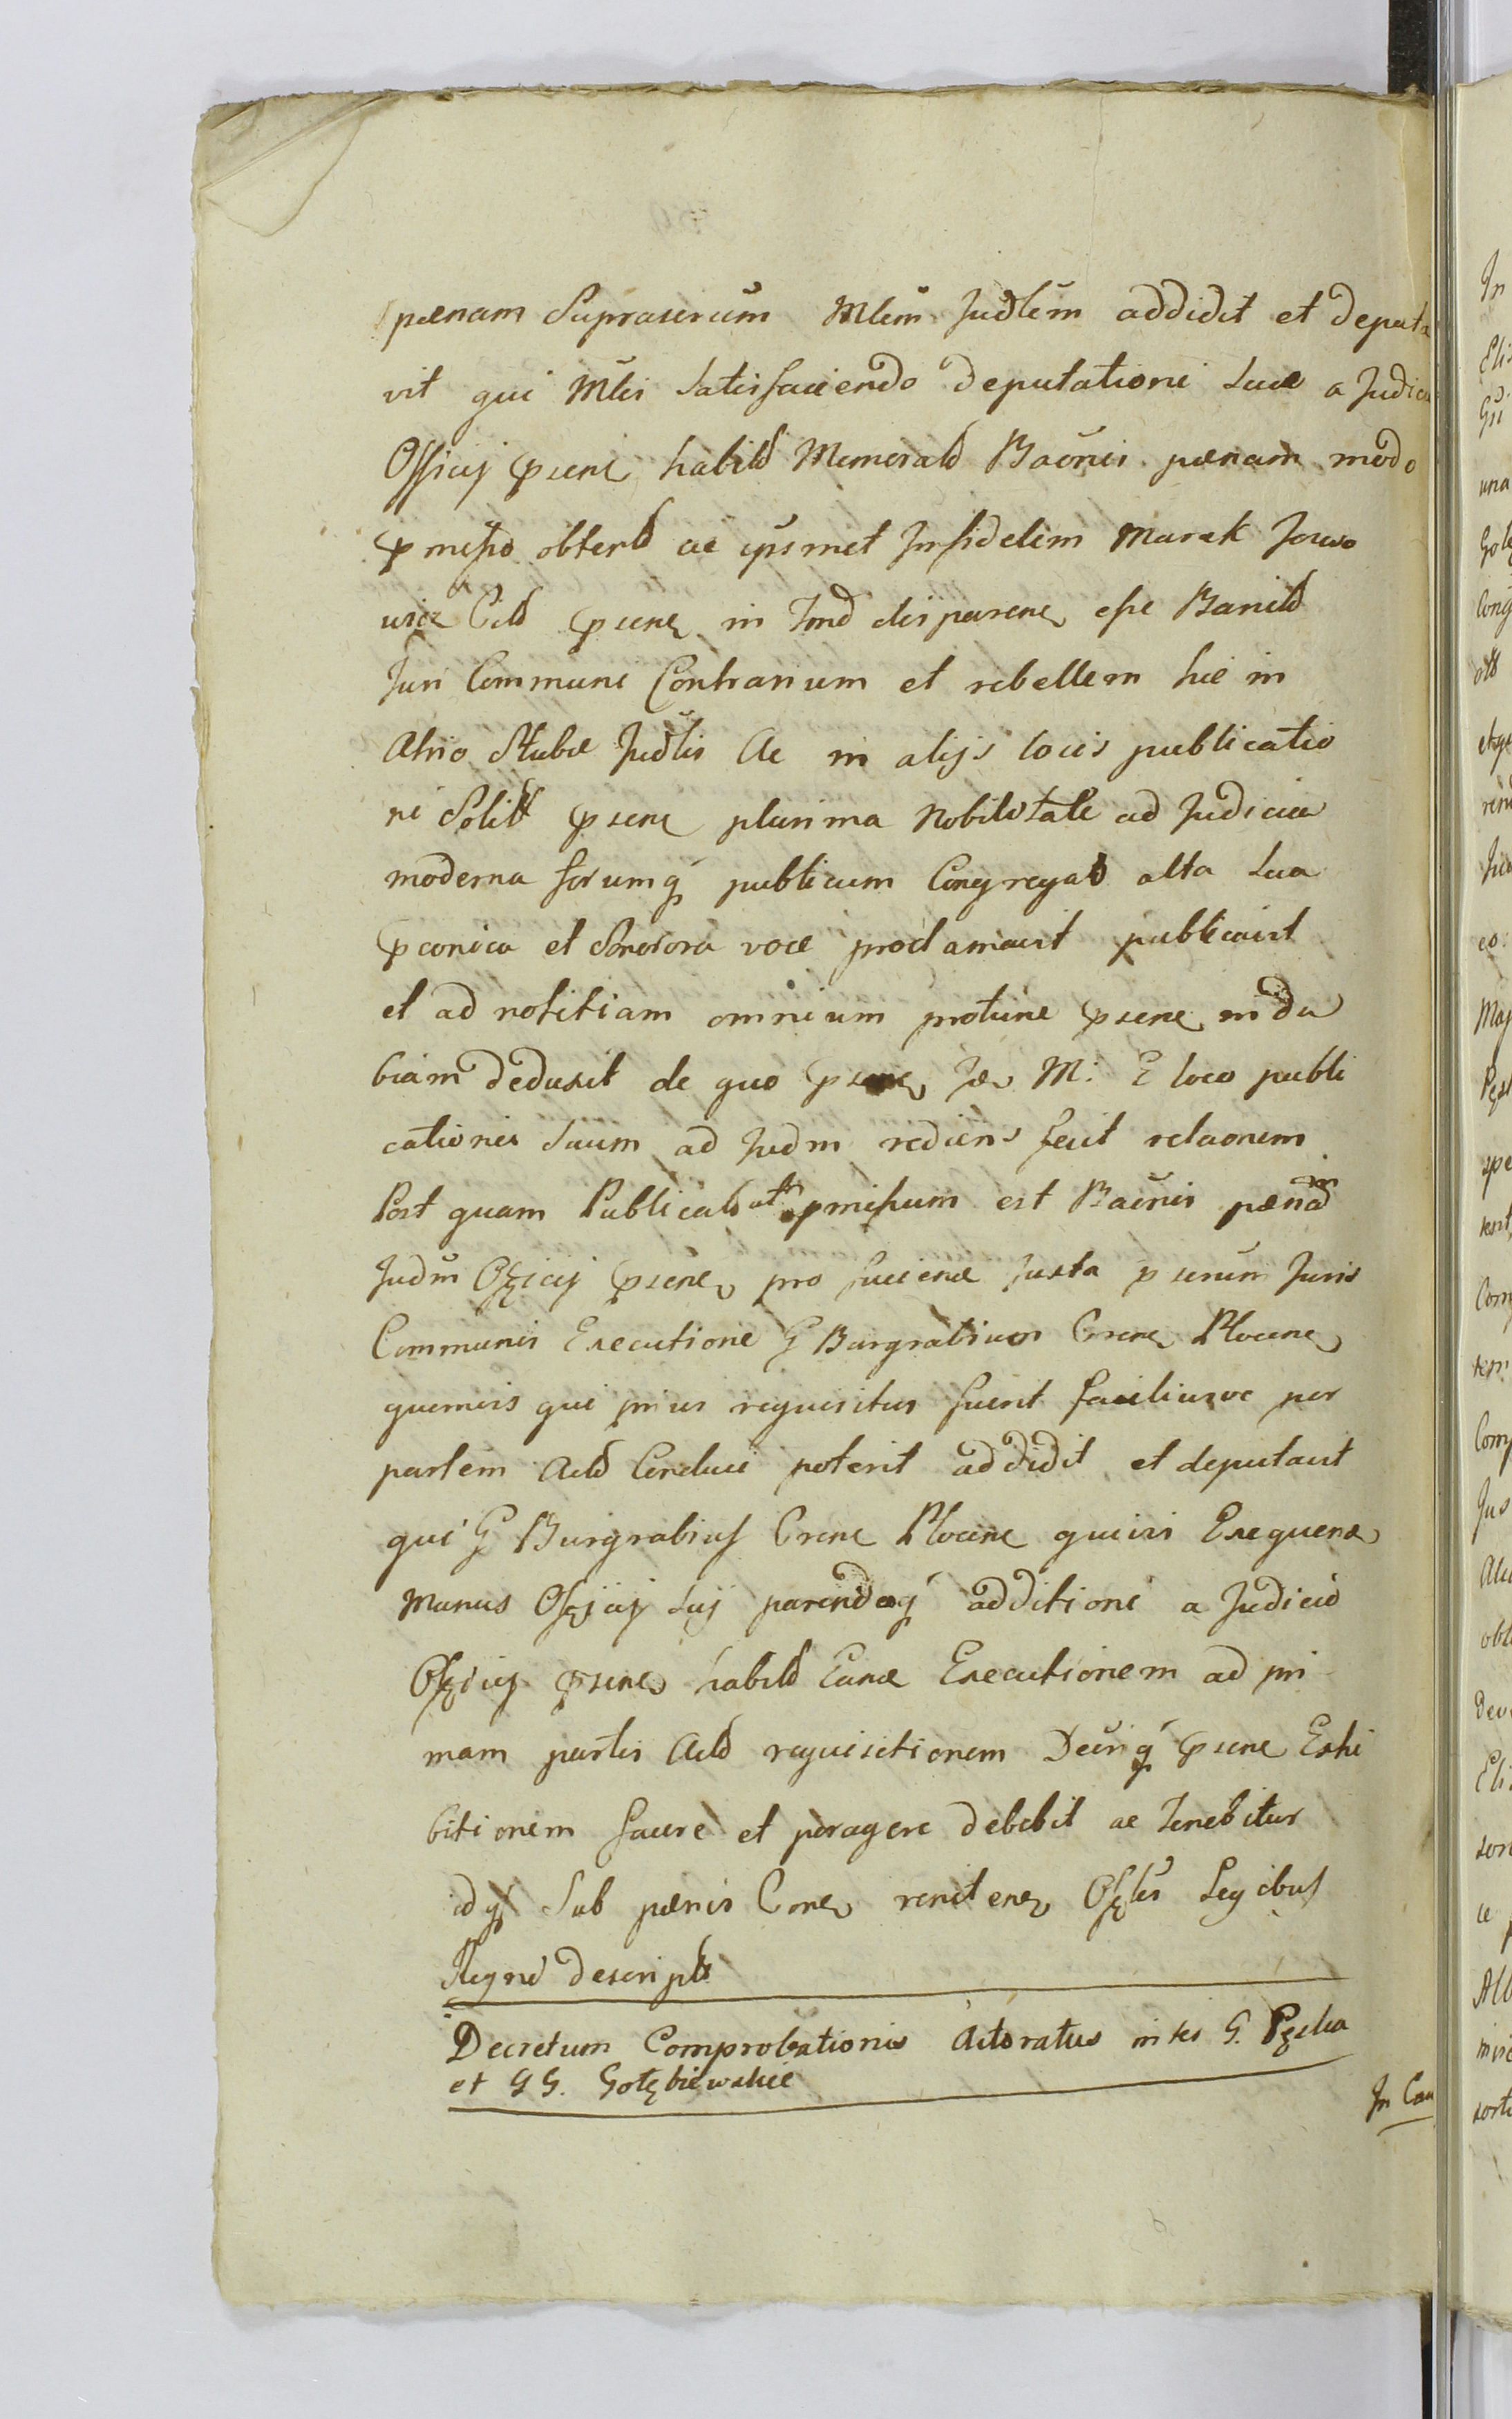 pænam Suprascrium Mlem Judlem addidit et deputa
vit qui Mlis satisfaciendo deputationi suæ a Judicio
Officij psene habild Memorald Baonis pænam modo
pmisso obtend ac ipsmet Infidelem Marek Jowo
wicz Citd psene in Tmo disparene esse Banitd
Juri Communi Contrarium et rebellem hic in
Atrio Stubæ Judlis Ac in alijs locis publicatio
ni Solitt psene plurima Nobilitate ad Judicia
moderna forumq publicum Congregato alta sua
pconica et Sonorora voce proclamavit publicavit
et ad notitiam omnium protunc psene indu
biam deduxit de quo psene M: E loco publi
cationis suum ad Judm rediens fecit relaonem
Post quam Publicatt ut pmissum est Baonis pænam
Judm Officij psene pro faciend Juxta pscrum Juris
Communis Executione G Burgrabium Crsene Plocene
quemvis qui prius requisitus fuerit faciliusve per
partem Actd Conduci poterit addidit et deputavit
qui G Burgrabius Crene Plocene quivis Exequend
Munus Officij sui parendoq additioni a Judicio
Officij psene habild Eand Executionem ad pri
mam partis Actd requisitionem Decriq psene Exhi
bitionem facere et peragere debebit ac Tenebitur
idq Sub pænis Cone renitene Offles Legibus
Regni descriptt
Decretum Comprobationis Actoratus inter G. Pęska
et GG. Gołębiewskie
In Cau